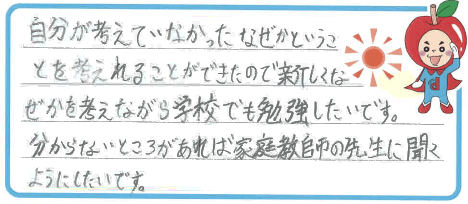 自分が考えていなかったなぜかというこ
とを考えれることができたので新しくな
ぜかを考えながら学校でも勉強したいです。
分からないところがあれば家庭教師の先生に聞く
ようにしたいです。
d